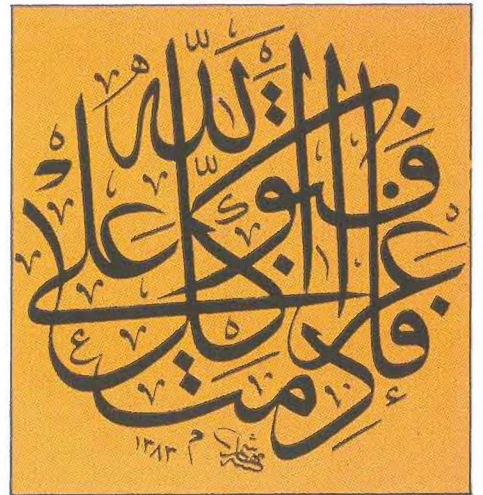 فَإِذَا عَزَمْتَ فَتَوَكَّلْ عَلَى اللّٰهِ
١٣٨٣